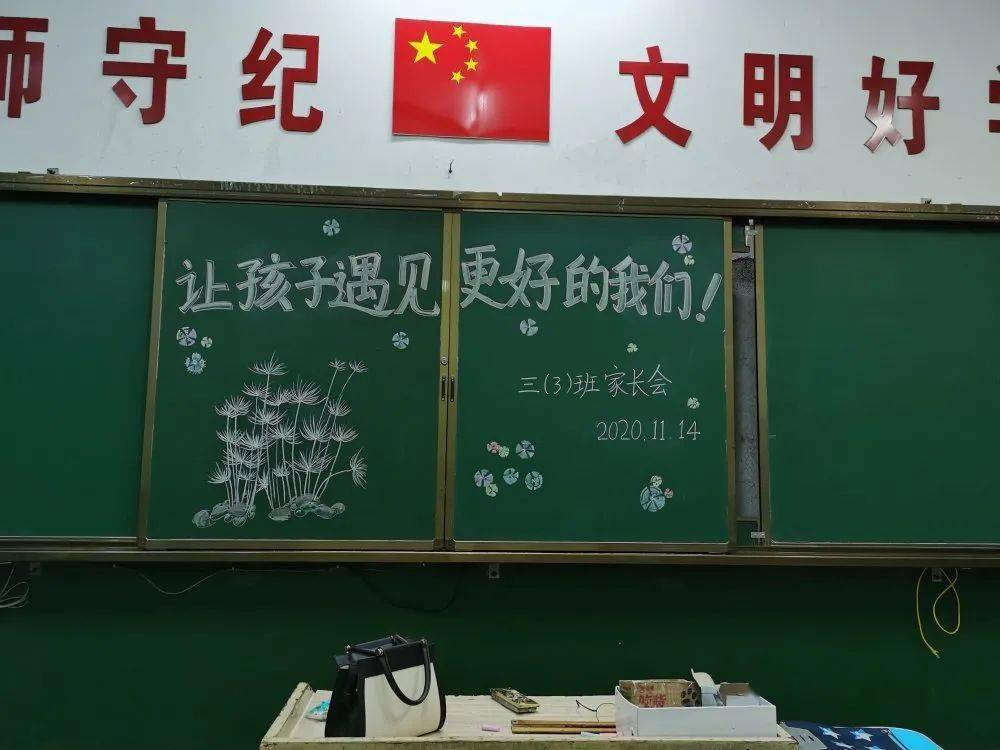 师守纪 文明好学
让孩子遇见更好的我们!
三(3)班家长会
2020.11.14